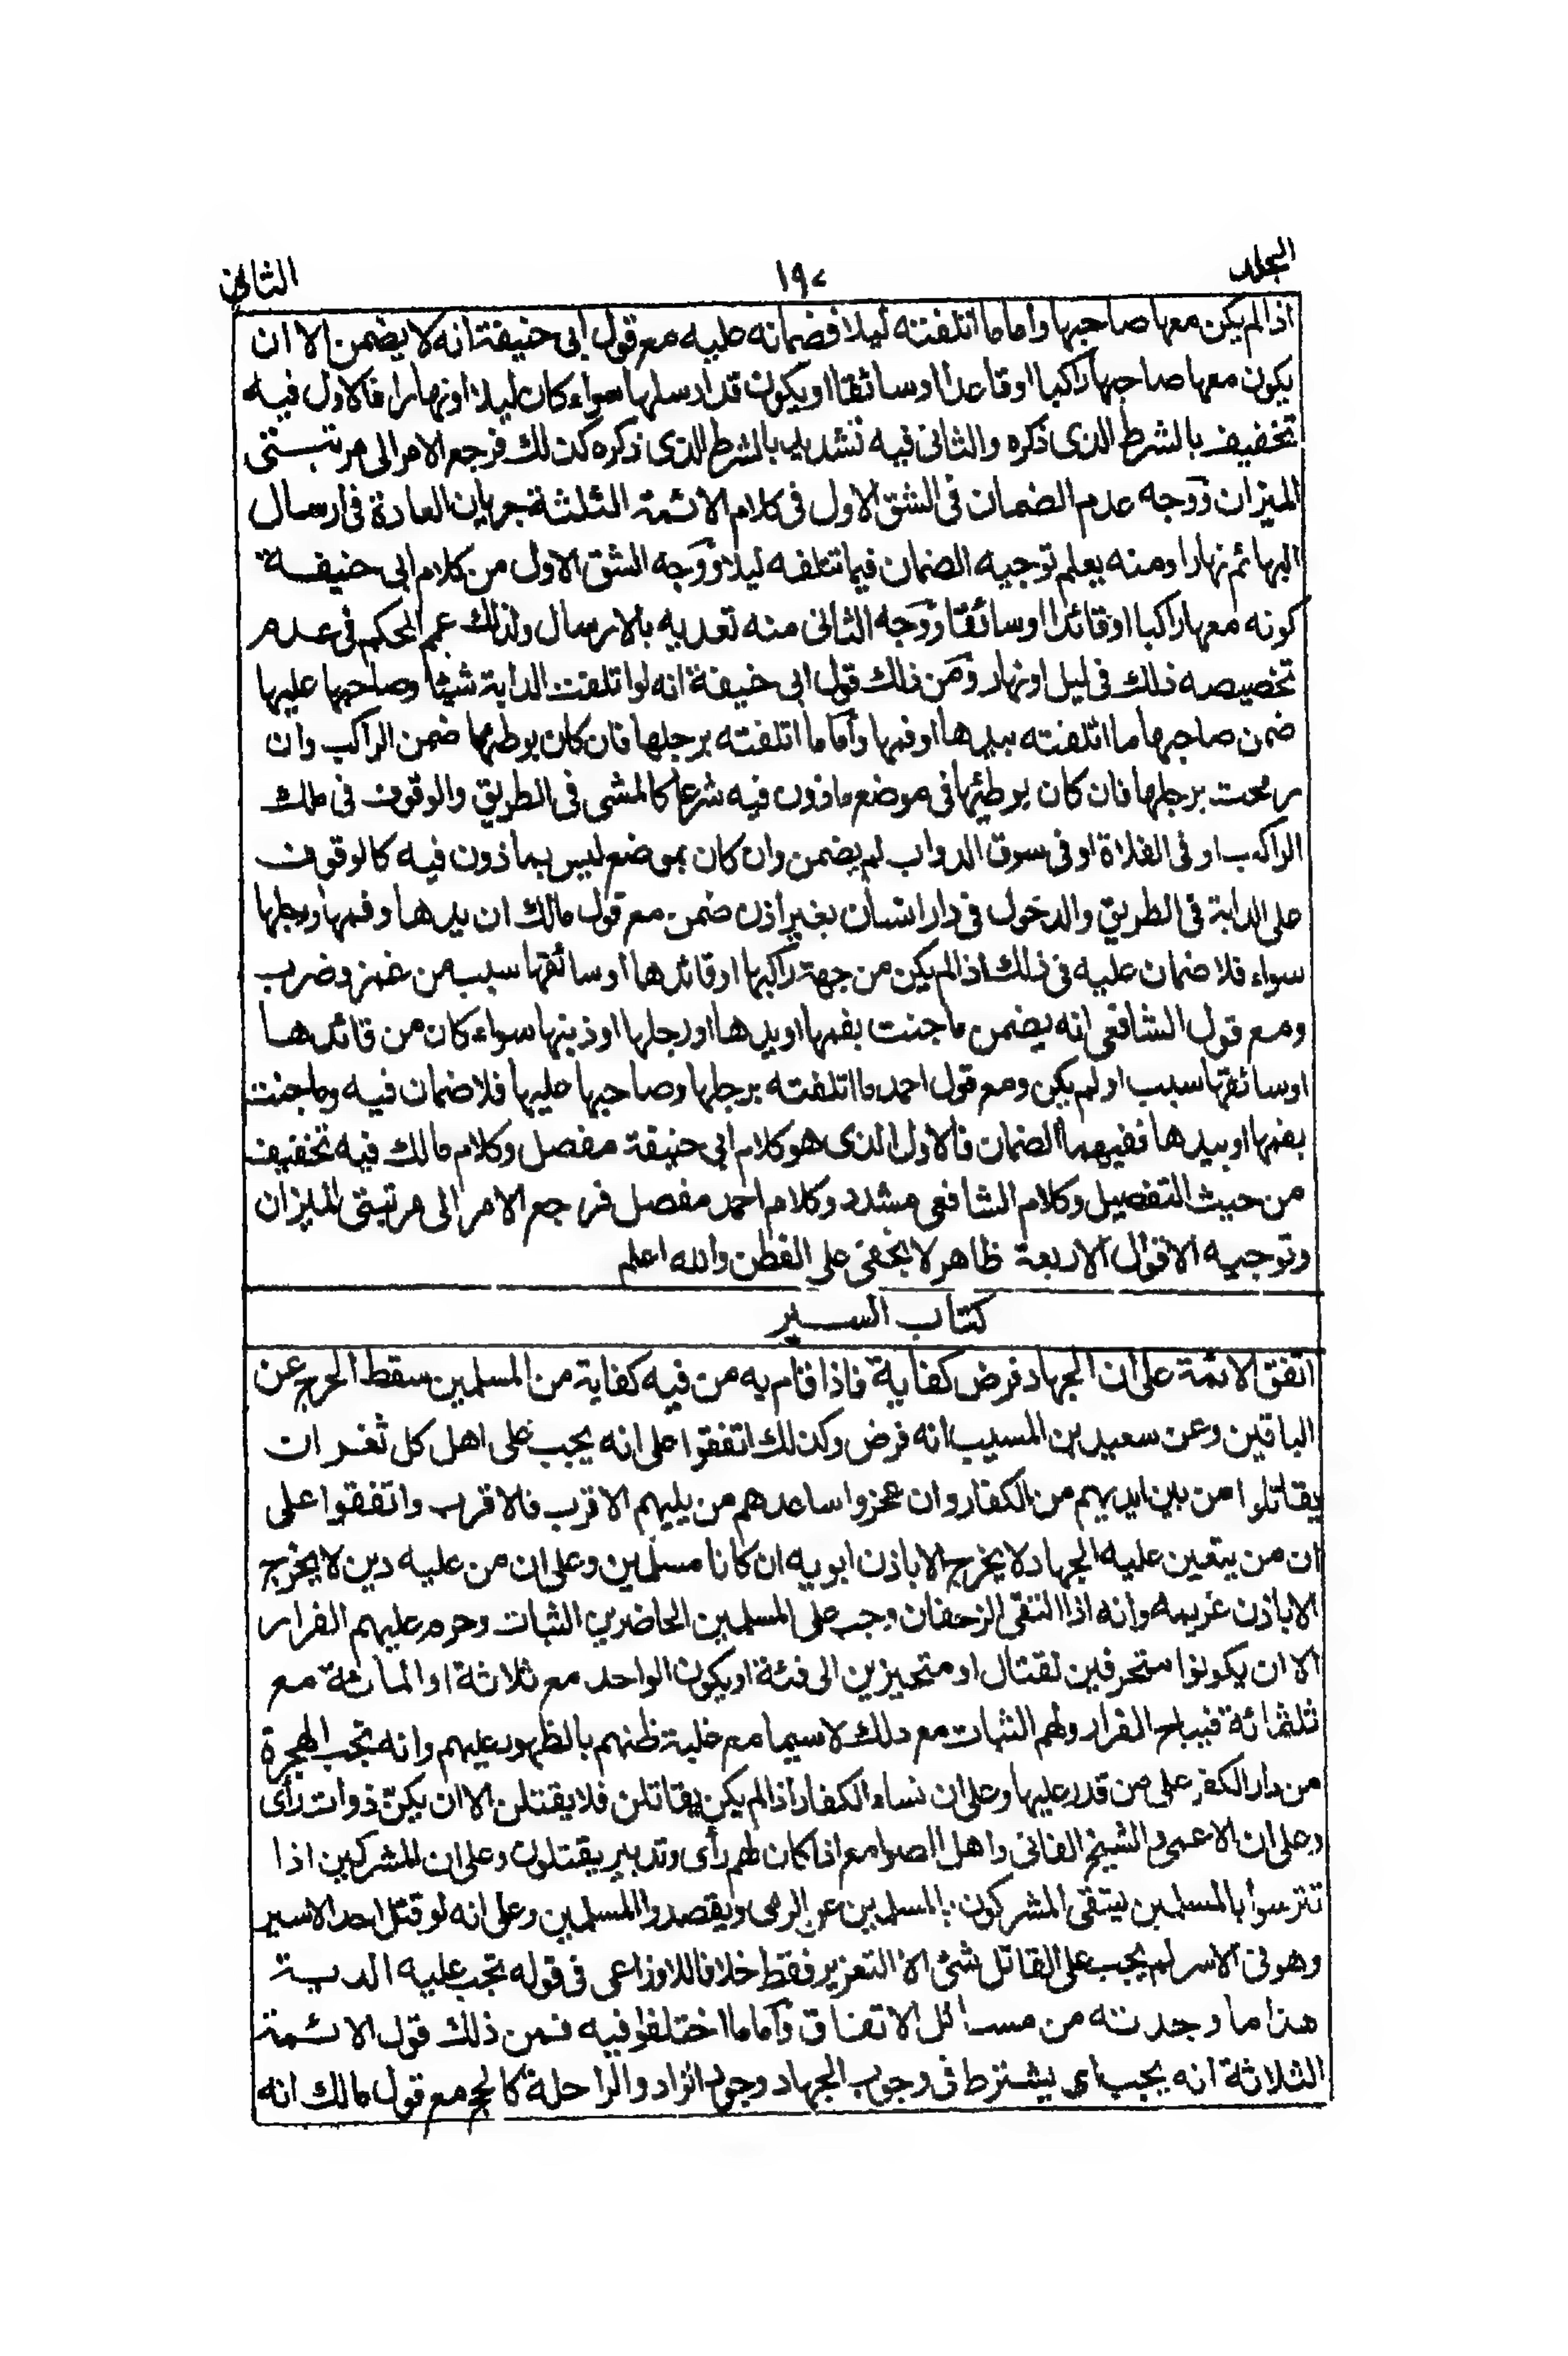 المجلد ١٩٢ الثاني
اذالم يكن معها صاحبها واماما اتلفته ليلا فضمانه عليه مع قول ابى حنيفة انه لا يضمن الا ان
يكون معها صاحبها راكبا اوقاعدا اوسائقا او يكون قد ارسلها سواء كان ليلا او نهارا فالاول فيه
تخفيف بالشرط الذى ذكره والثانى فيه تشديد بالشرط الذى ذكره كذلك فرجع الامر الى مرتبتى
الميزان ووجه عدم الضمان فى الشق الاول فى كلام الائمة الثلثة جريان العادة فى ارسال
البهائم نهارا ومنه يعلم توجيه الضمان فيما تتلفه ليلا ووجه الشق الاول من كلام ابى حنيفة
كونه معها راكبا اوقائدا اوسائقا ووجه الثانى منه تعديه بالارسال ولذلك عمم الحكم فى عدم
تخصيصه ذلك فى ليل اونهار ومن ذلك قول ابى حنيفة انه لو اتلفت الدابة شيئا وصاحبها عليها
ضمن صاحبها ما اتلفته بيدها اوفمها واما ما اتلفته برجلها فان كان بوطئها ضمن الراكب وان
رمحت برجلها فان كان بوطئها فى موضع ماذون فيه شرعا كالمشى فى الطريق والوقوف فى ملك
الراكب او فى الفلاة او فى سوق الدواب لم يضمن وان كان بموضع ليس بماذون فيه كالوقوف
على الدابة فى الطريق والدخول فى دار انسان بغير اذن ضمن مع قول مالك ان يدها وفمها ورجلها
سواء فلا ضمان عليه فى ذلك اذالم يكن من جهة راكبها اوقائدها اوسائقها سبب من غمز وضرب
ومع قول الشافعى انه يضمن ما جنت بفمها اويدها اورجلها اوذنبها سواء كان من قائدها
اوسائقها سبب اولم يكن ومع قول احمد ما اتلفته برجلها وصاحبها عليها فلا ضمان فيه وماجنت
بفمها اوبيدها ففيهما الضمان فالاول الذى هو كلام ابى حنيفة مفصل وكلام مالك فيه تخفيف
من حيث التفصيل وكلام الشافعى مشدد وكلام احمد مفصل فرجع الامر الى مرتبتى الميزان
وتوجيه الاقوال الاربعة ظاهر لا يخفى على الفطن والله اعلم
كتاب السير
اتفق الائمة على ان الجهاد فرض كفاية فاذا قام به من فيه كفاية من المسلمين سقط الحرج عن
الباقين وعن سعيد بن المسيب انه فرض وكذلك اتفقوا على انه يجب على اهل كل ثغر ان
يقاتلوا من بين ايديهم من الكفار وان عجزوا ساعدهم من يليهم الاقرب فالاقرب واتفقوا على
ان من يتعين عليه الجهاد لا يخرج الا باذن ابويه ان كانا مسلمين وعلى ان من عليه دين لا يخرج
الا باذن غريمه وانه اذا التقى الزحفان وجب على المسلمين الحاضرين الثبات وحرم عليهم الفرار
الا ان يكونوا متحرفين لقتال او متحيزين الى فئة اويكون الواحد مع ثلاثة او المائة مع
ثلثمائة فيباح الفرار ولهم الثبات مع ذلك لاسيما مع غلبة ظنهم بالظهور عليهم وانه تجب الهجرة
من دار الكفر على من قدر عليها وعلى ان نساء الكفار اذالم يكن يقاتلن فلا يقتلن الا ان يكن ذوات رأى
وعلى ان الاعمى والشيخ الفانى واهل الصوامع اذا كان لهم رأى وتدبير يقتلون وعلى ان للمشركين اذا
تترسوا بالمسلمين ليتقى المشركون بالمسلمين عن الرمى ويقصدوا المسلمين وعلى انه لو قتل احد الاسير
وهو فى الاسر لم يجب على القاتل شئ الا التعزير فقط خلافا للاوزاعى فى قوله تجب عليه الدية
هذا ما وجدته من مسائل الاتفاق واما ما اختلفوا فيه فمن ذلك قول الائمة
الثلاثة انه يجب اى يشترط فى وجوب الجهاد وجود الزاد والراحلة كالحج مع قول مالك انه